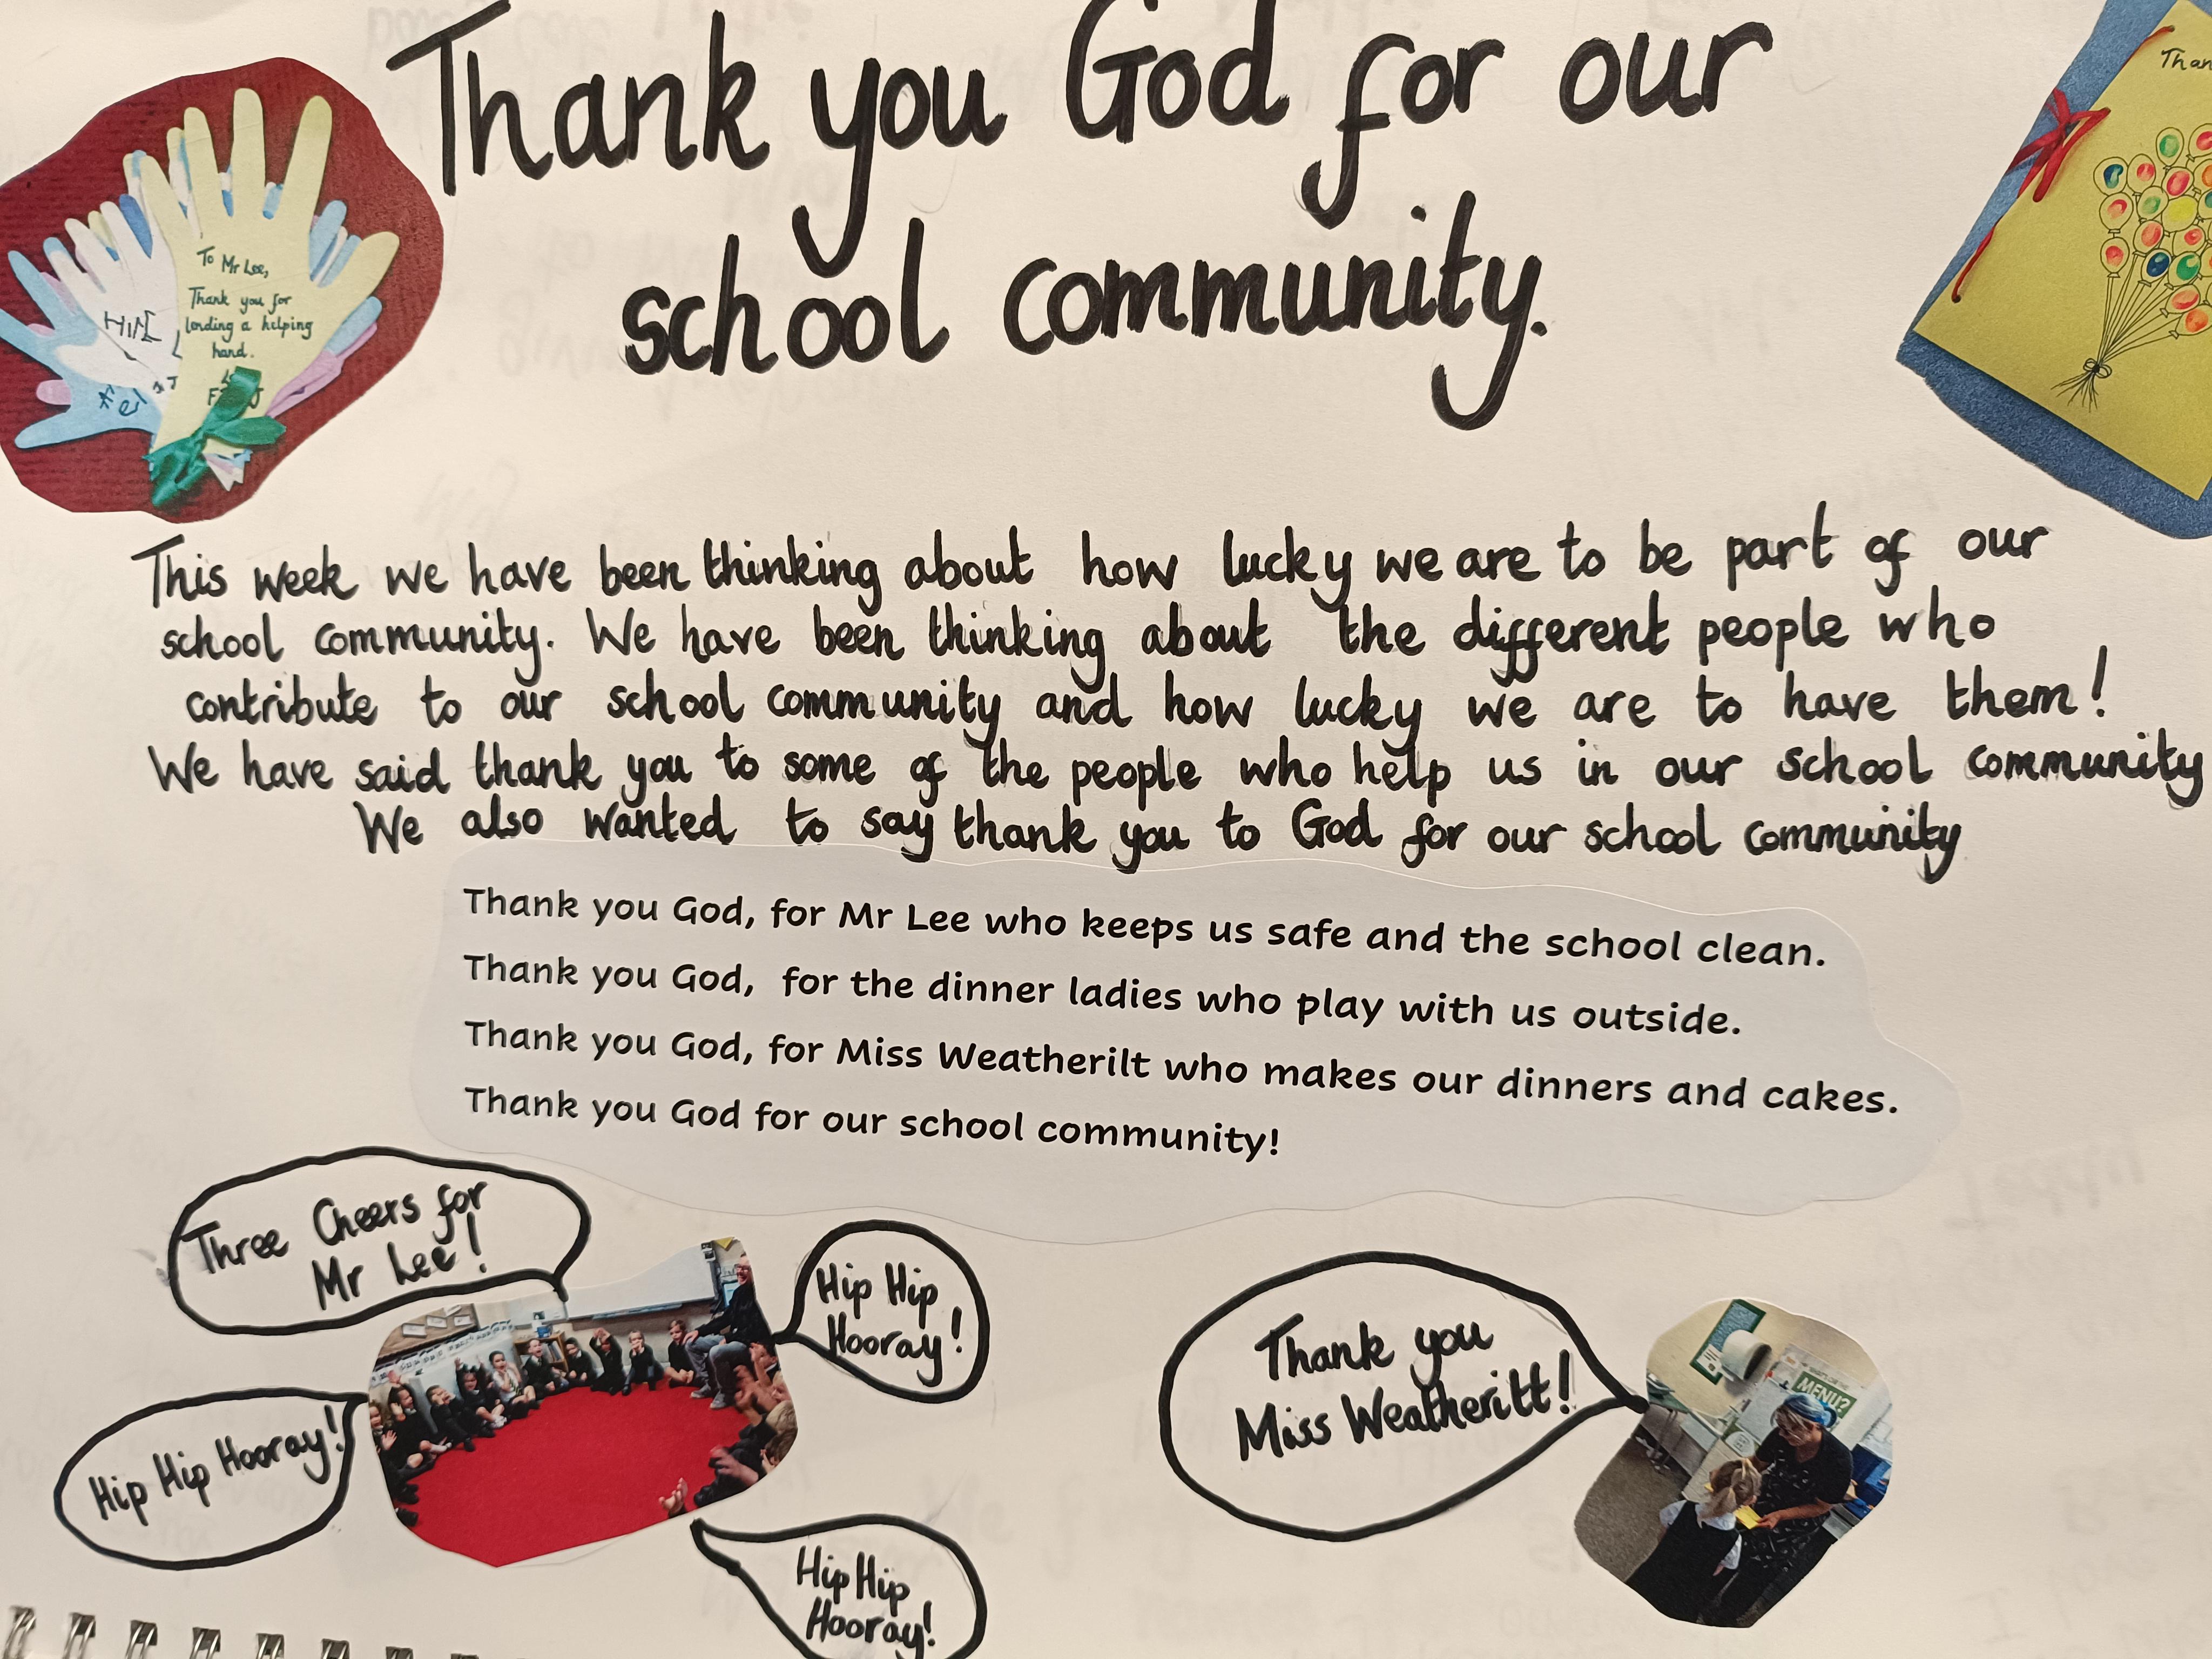 Thank you God for our
school community.
To Mr Lee,
Thank you for
lending a helping
hand.
This week we have been thinking about how lucky we are to be part of our
school community. We have been thinking about the different people who
contribute to our school community and how lucky we are to have them!
We have said thank you to some of the people who help us in our school community
We also wanted to say thank you to God for our school community
Thank you God, for Mr Lee who keeps us safe and the school clean.
Thank you God, for the dinner ladies who play with us outside.
Thank you God, for Miss Weatherilt who makes our dinners and cakes.
Thank you God for our school community!
Three Cheers for
Mr Lee!
Hip Hip
Hooray!
Hip Hip Hooray!
Hip Hip
Hooray!
Thank you
Miss Weatheritt!
MENU?